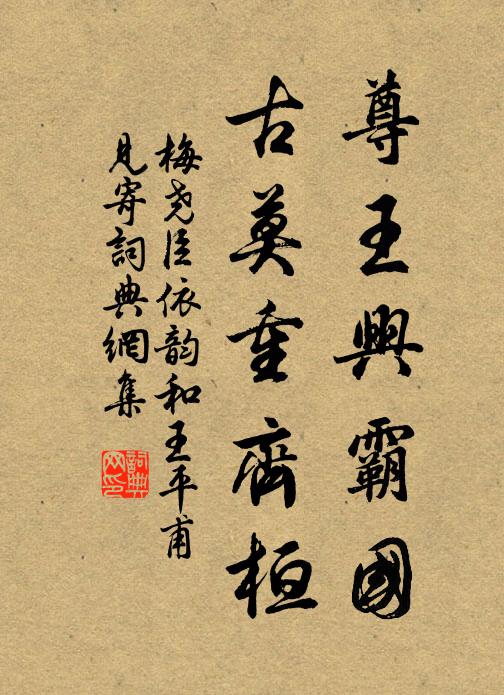 尊王興霸國
古莫重齊桓
梅堯臣依韵和王平甫
見寄詞典網集
詞典
网印